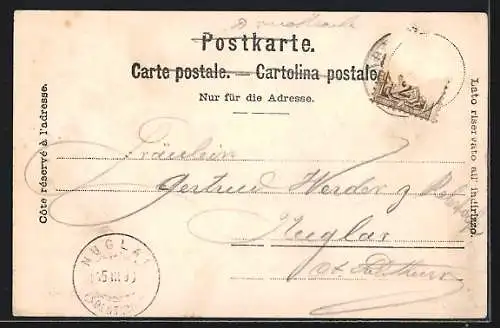 Postkarte.
Carte postale. — Cartolina postale
Nur für die Adresse.
Côte réservé à l'adresse.
Lato riservato all' indirizzo.
Fräulein
Gertrud Werder z
Nuglar
Ct. Solothurn
NUGLAR